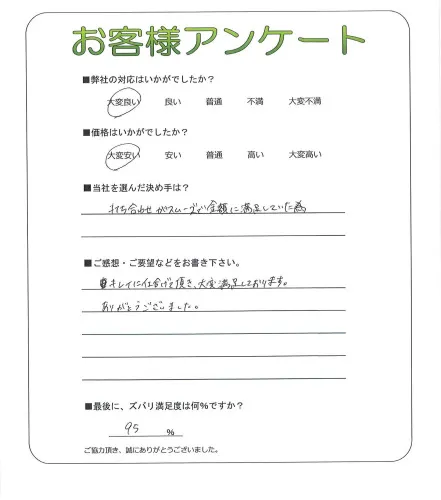 お客様アンケート
■弊社の対応はいかがでしたか?
大変良い 良い 普通 不満 大変不満
■価格はいかがでしたか?
大変安い 安い 普通 高い 大変高い
■当社を選んだ決め手は?
打ち合わせがスムーズで金額に満足していた為
■ご感想・ご要望などをお書き下さい。
キレイに仕上げて頂き、大変満足しております。
ありがとうございました。
■最後に、ズバリ満足度は何%ですか?
95 %
ご協力頂き、誠にありがとうございました。